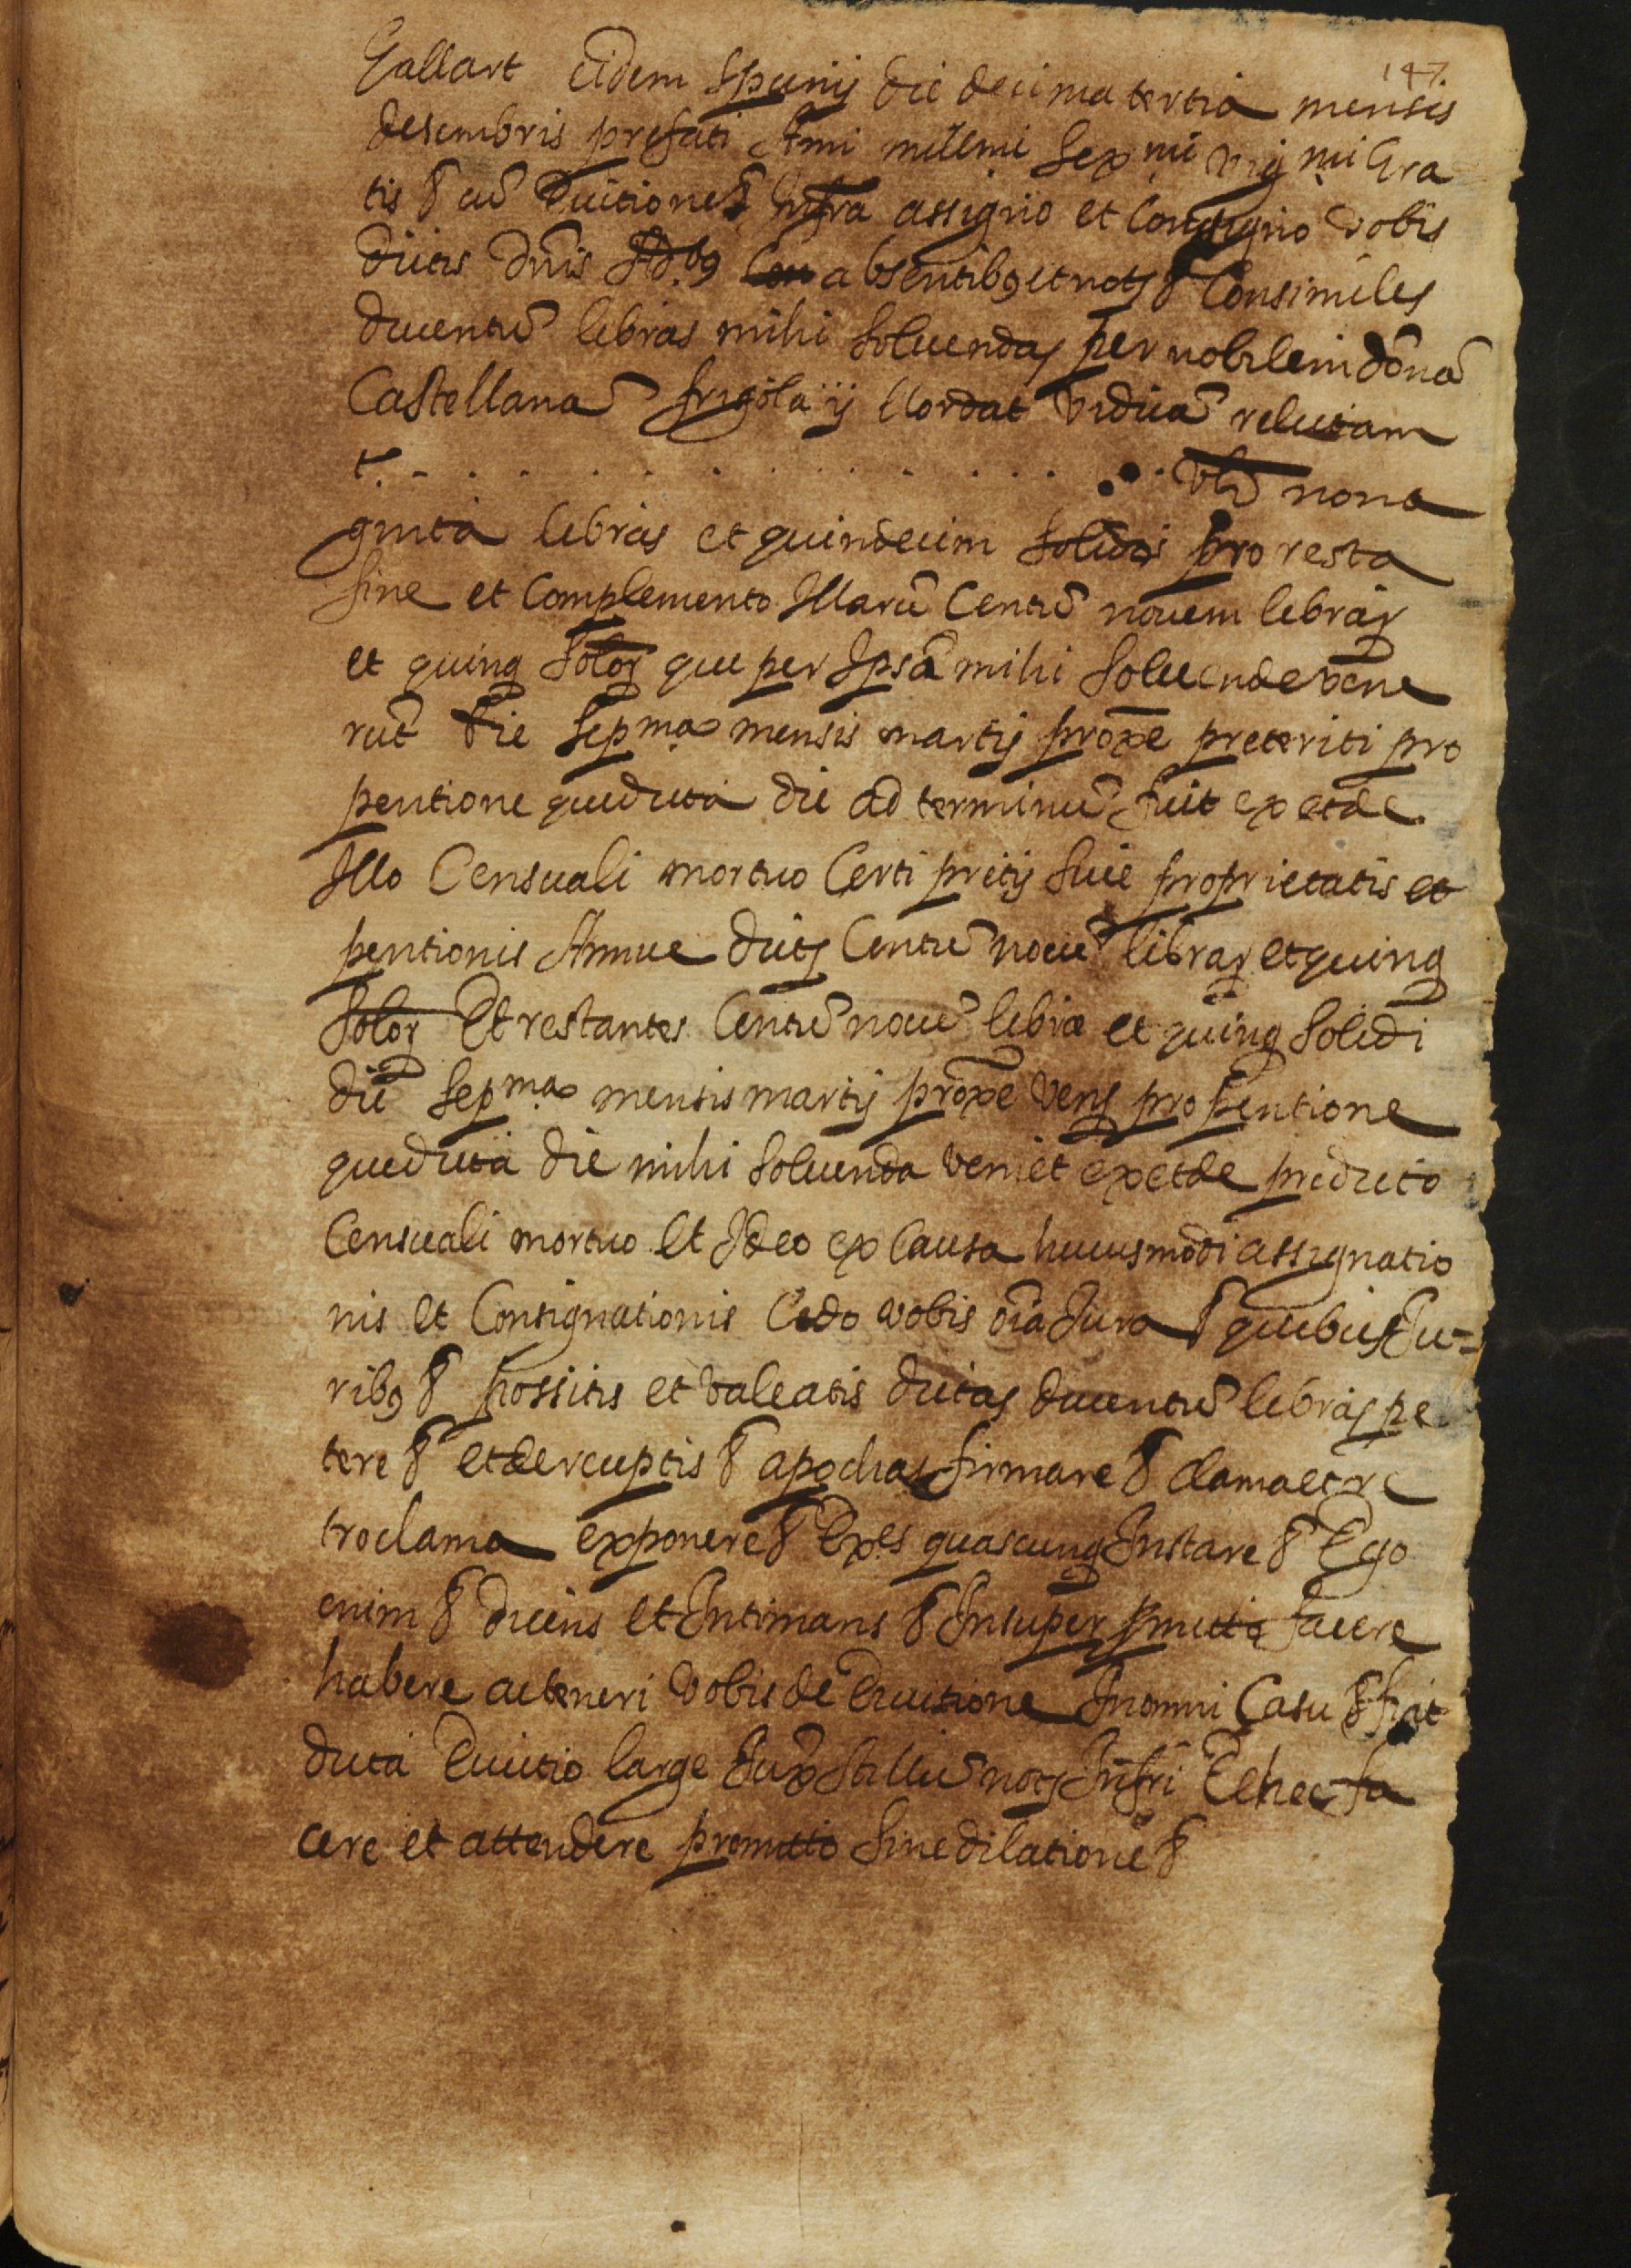 147.
Gallart eidem Spunÿ die decima tertia mensis
desembris prefati Anni millmi Sexmi vigmi Gra
tis & cū Evictione & infra assigno et Consigno vobis
dictis dn̄is absentib9 et not & Consimiles
ducentū libras mihi Soluendas per nobilem don̄a
Castellanā frigola ÿ llordat viduā relictam
t. . . . . . . . . . . . . . . vls nona
ginta libras et quindecim Solidos pro resta
fine et Complemento Illarū Centū novem librar
et quinq Solor que per Ipsā mihi Soluende vene
rūt die Sepma mensis martÿ prox̄e preteriti pro
pentione que dicta die ad terminū fuit ex et de
Illo Censuali mortuo Certi pretÿ Sive proprietatis et
pentionis Annue dict Centū novē librar et quinq
Solor Et restantes Centū novē libræ et quinq Solidi
diē Sepma mensis martÿ prox̄e ven pro pentione
que dicta die mihi Soluenda veniet ex et de predicto
Censuali mortuo Et Ideo ex Causa huiusmodi assignatio
nis et Consignationis Cedo vobis ōia Jura & quibus Ju=
rib9 & possitis et valeatis dictas ducentū libras pe
tere & et de receptis & apochas firmare & clama et re
troclama exponere & Ex.es quascunq Instare & Ego
enim & dicens et Intimans & Insuper pmitto facere
habere ac teneri vobis de Evictione In omni Casu & fiat
dicta Evictio large Jux Stillū not Infri Et hec fa
cere et attendere promitto Sine dilatione &